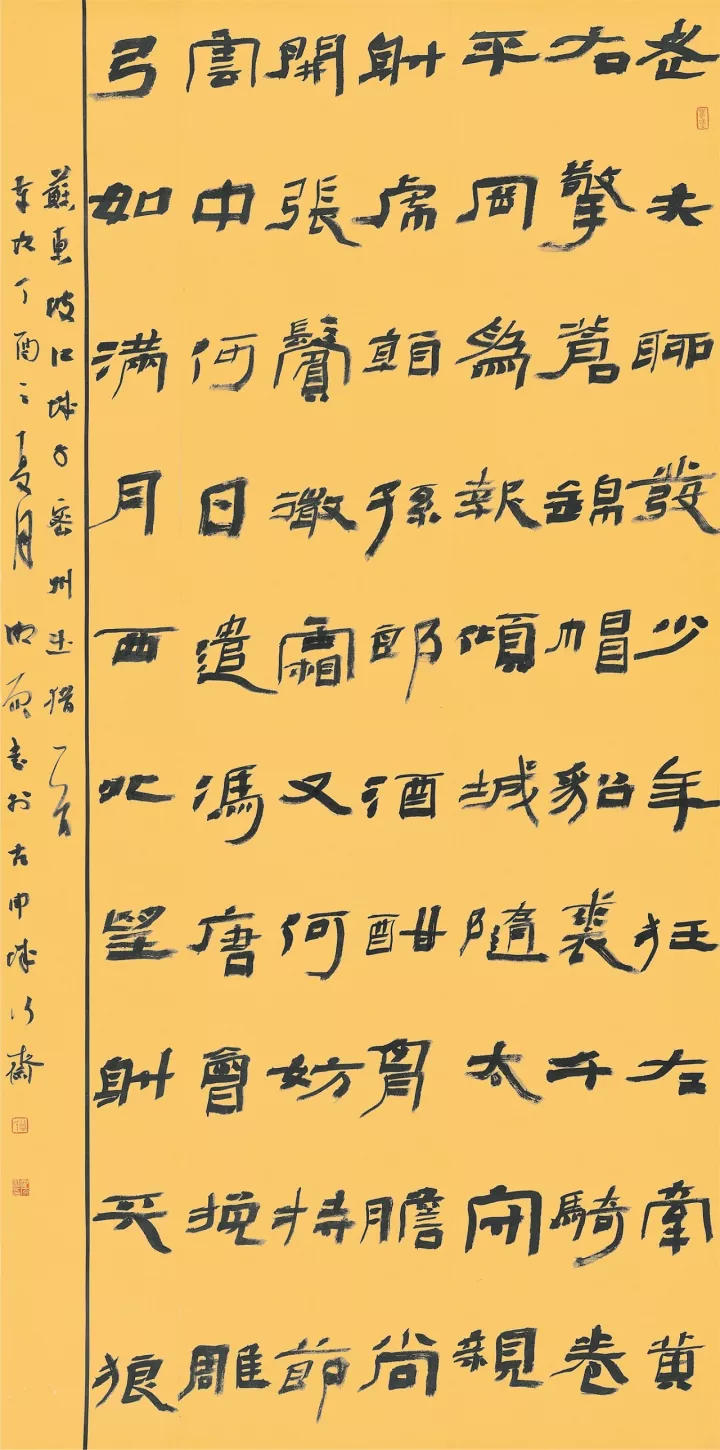 老夫聊發少年狂左牽黃
右擎蒼錦帽貂裘千騎卷
平岡爲報傾城隨太守親
射虎看孫郎酒酣胸膽尚
開張鬢微霜又何妨持節
雲中何日遣馮唐會挽雕
弓如滿月西北望射天狼
蘇東坡江城子密州出獵一首
歲次丁酉之夏月書於古申城